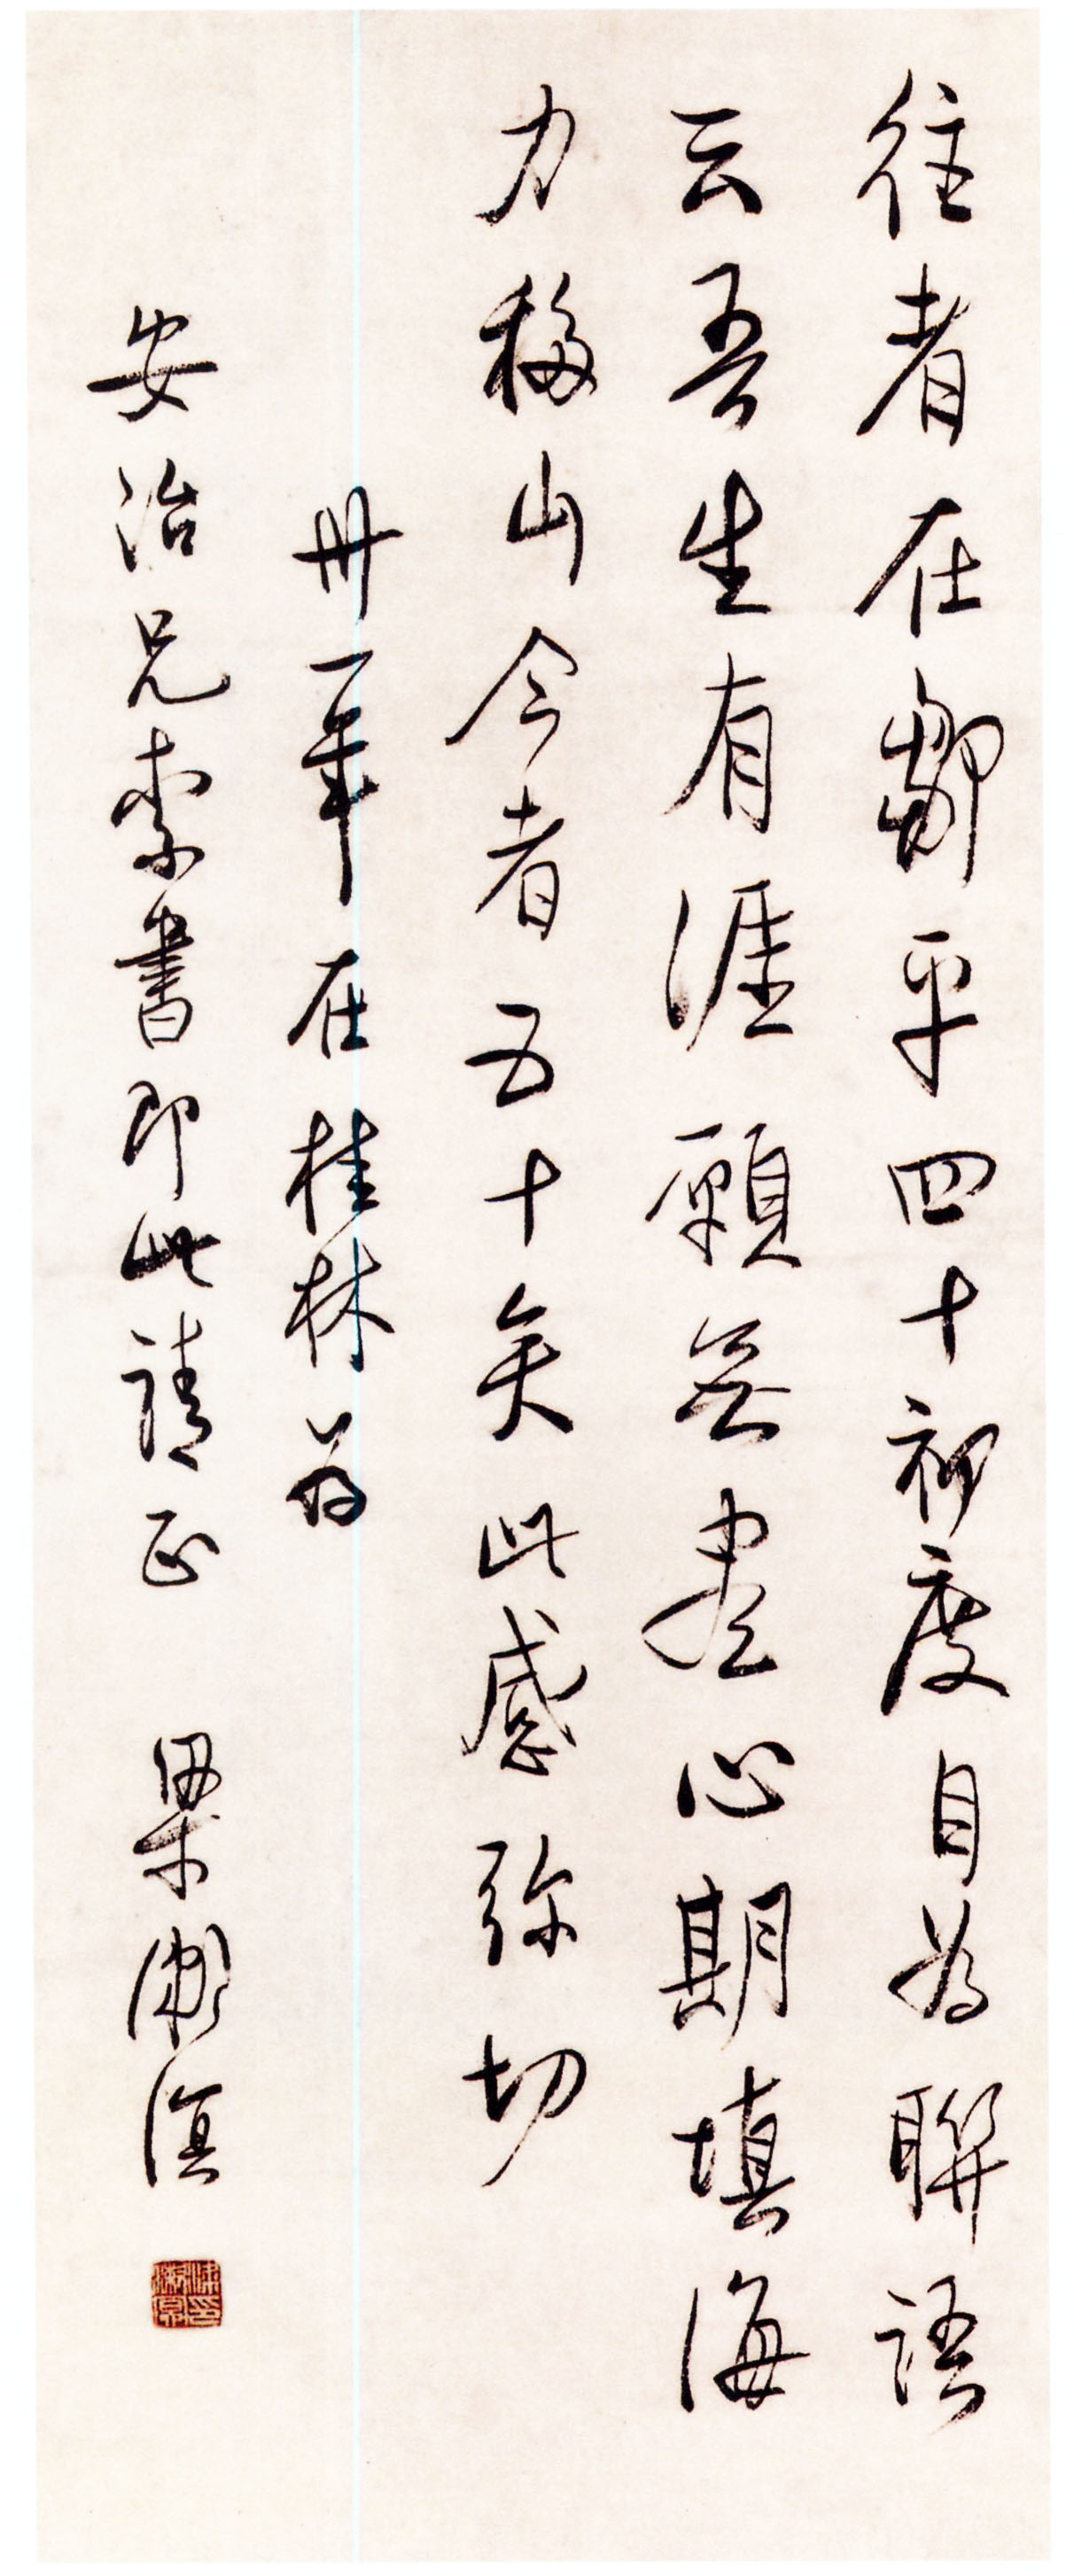 往者在鄒平四十初度自為聯語
云吾生有涯願無盡心期填海
力移山今者五十矣此感彌切
卅一年在桂林為
安治兄索書即此請正 梁漱溟
梁漱溟印